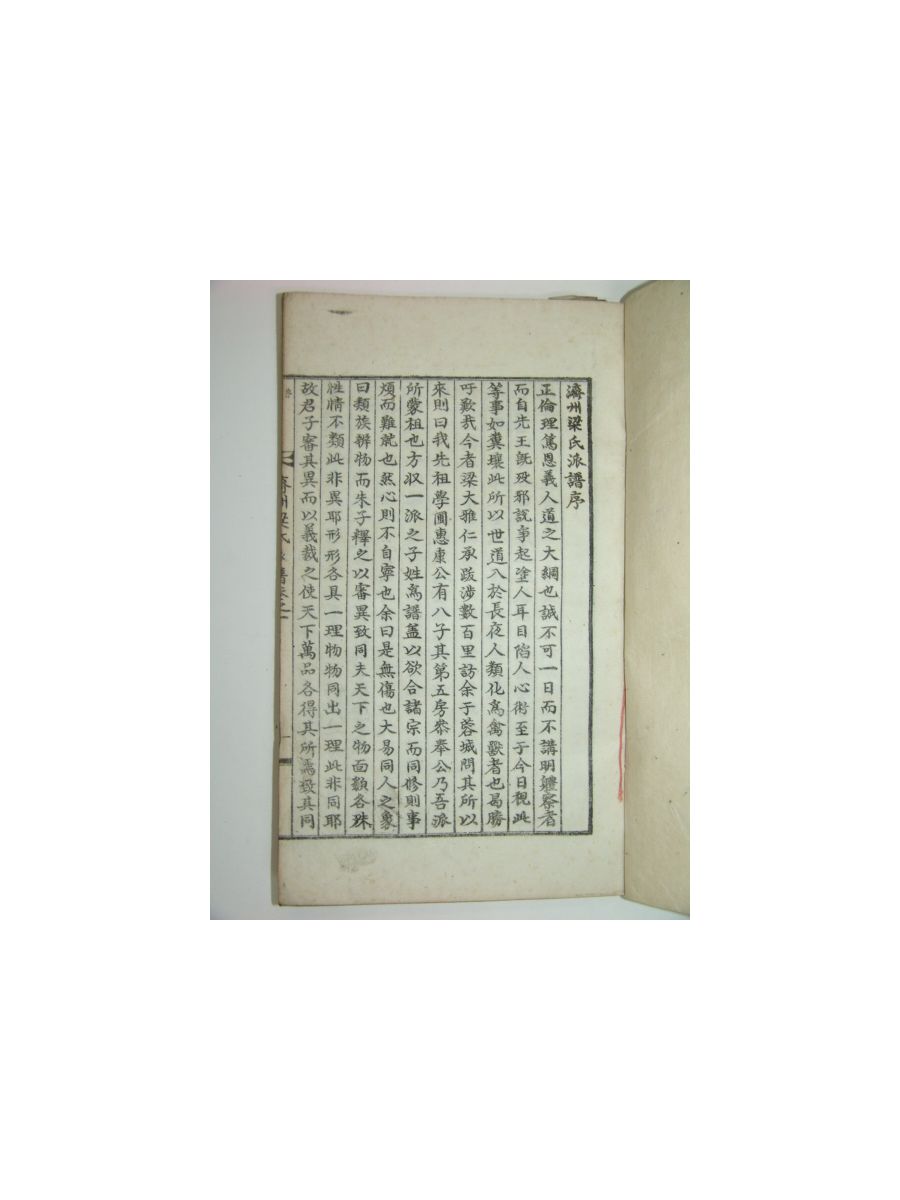 濟州梁氏派譜序
正倫理篤恩義人道之大綱也誠不可一日而不講明軆察者
而自先王旣歿邪說爭起塗人耳目陷人心術至于今日視此
等事如糞壤此所以世道入於長夜人類化爲禽獸者也曷勝
吁歎哉今者梁大雅仁承跋涉數百里訪余于蓉城問其所以
來則曰我先祖學圃惠康公有八子其第五房叅奉公乃吾派
所蒙祖也方収一派之子姓爲譜盖以欲合諸宗而同修則事
煩而難就也然心則不自寧也余曰是無傷也大易同人之象
曰類族辨物而朱子釋之以審異致同夫天下之物面類各殊
性情不類此非異耶形形各具一理物物同出一理此非同耶
故君子審其異而以義裁之使天下萬品各得其所焉致其同
序
濟州梁氏派譜卷之一
一